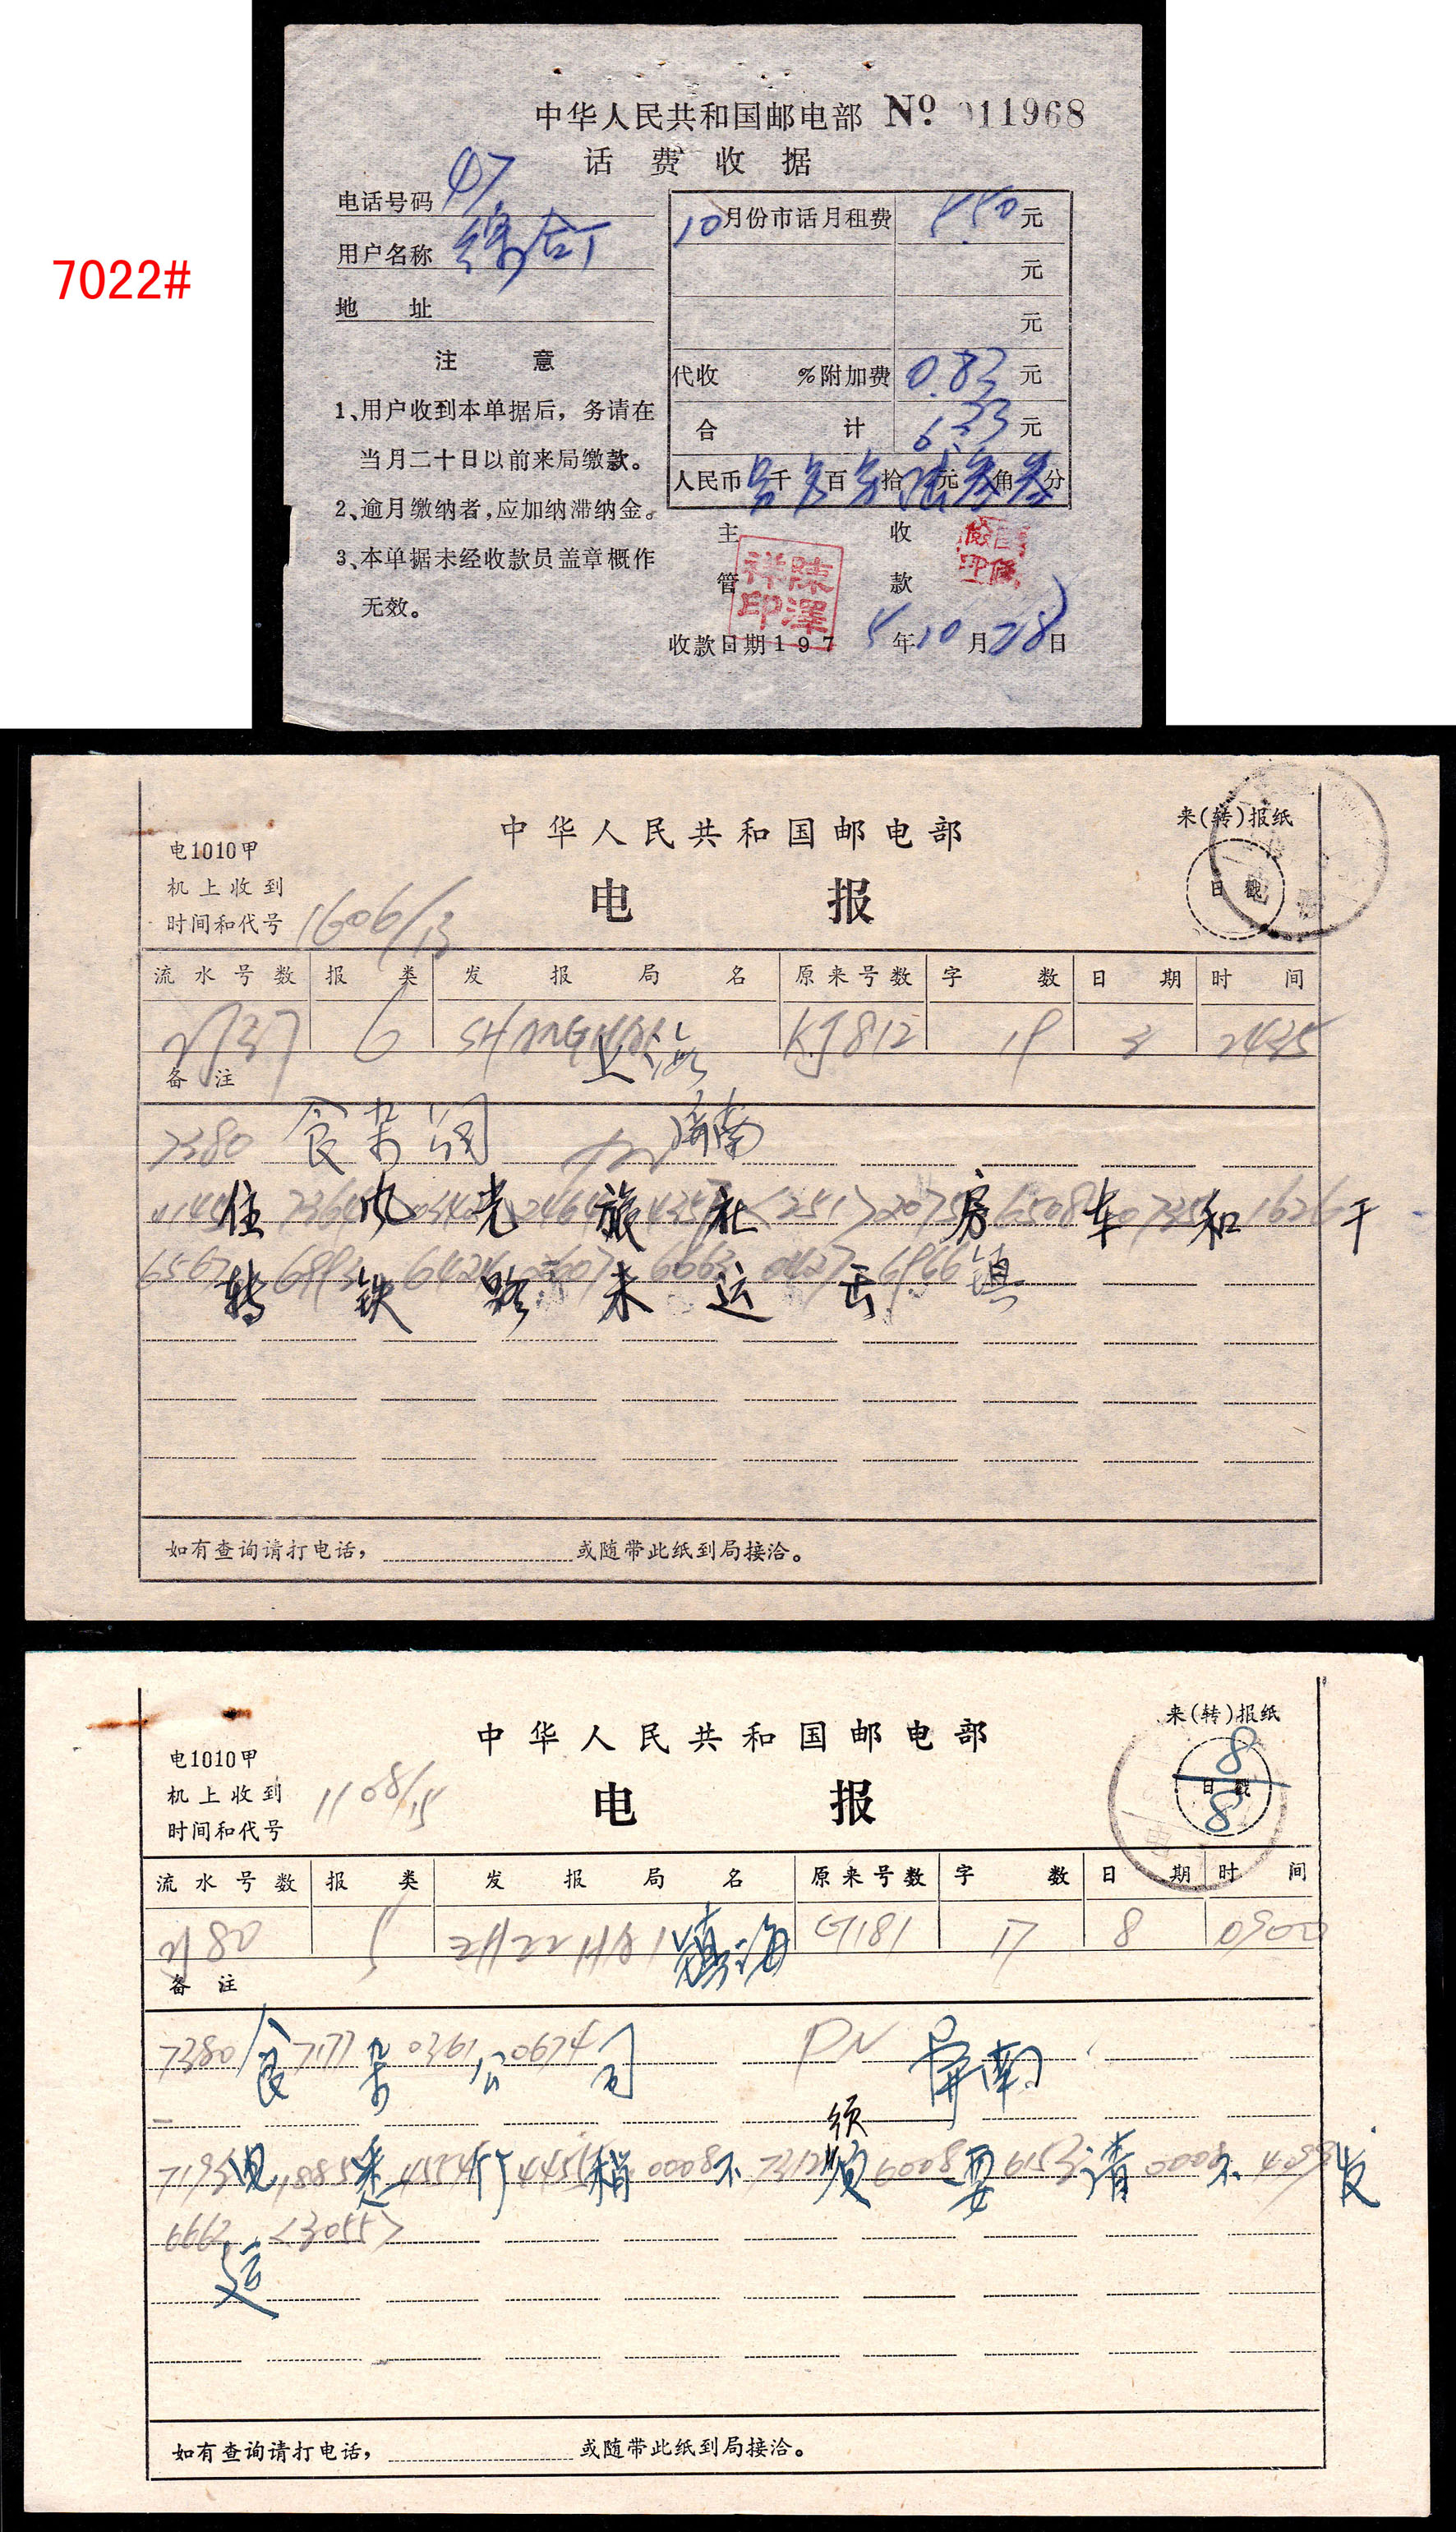 7022#
中华人民共和国邮电部 № 011968
话费收据
电话号码 47
用户名称 综合厂
地 址
注 意
1、用户收到本单据后，务请在
当月二十日以前来局缴款。
2、逾月缴纳者，应加纳滞纳金。
3、本单据未经收款员盖章概作
无效。
10月份市话月租费 5.50元
元
元
代收 %附加费 0.83元
合 计 6.33元
人民币 千 百 拾陆元叁角叁分
主管 收款
陳澤祥印
收款日期1975年10月28日
中华人民共和国邮电部
来(转)报纸
电1010甲
电 报
日 戳
机上收到
时间和代号 1606/13
流水号数 报 类 发 报 局 名 原来号数 字 数 日 期 时 间
6 SHANGHAI 上海 KJ812 19 3 2435
备 注
7380 食杂公司 屏南
住 风 光 旅 社 <251> 2075 房 6508 车 0735 和 1626 干
转 铁 路 未 运 去 镇
如有查询请打电话，或随带此纸到局接洽。
中华人民共和国邮电部
来(转)报纸
电1010甲
电 报
8
日 戳
8
机上收到
时间和代号 1108/15
流水号数 报 类 发 报 局 名 原来号数 字 数 日 期 时 间
5 镇海 G181 17 8 0900
备 注
7380 食 7177 杂 0361 公 0674 司 PN 屏南
须
7193 电 1885 悉 4554 竹 4451 稍 0008 不 7312 须 6008 要 6153 请 0008 不 4099 发
6662 <3055>
运
如有查询请打电话，或随带此纸到局接洽。